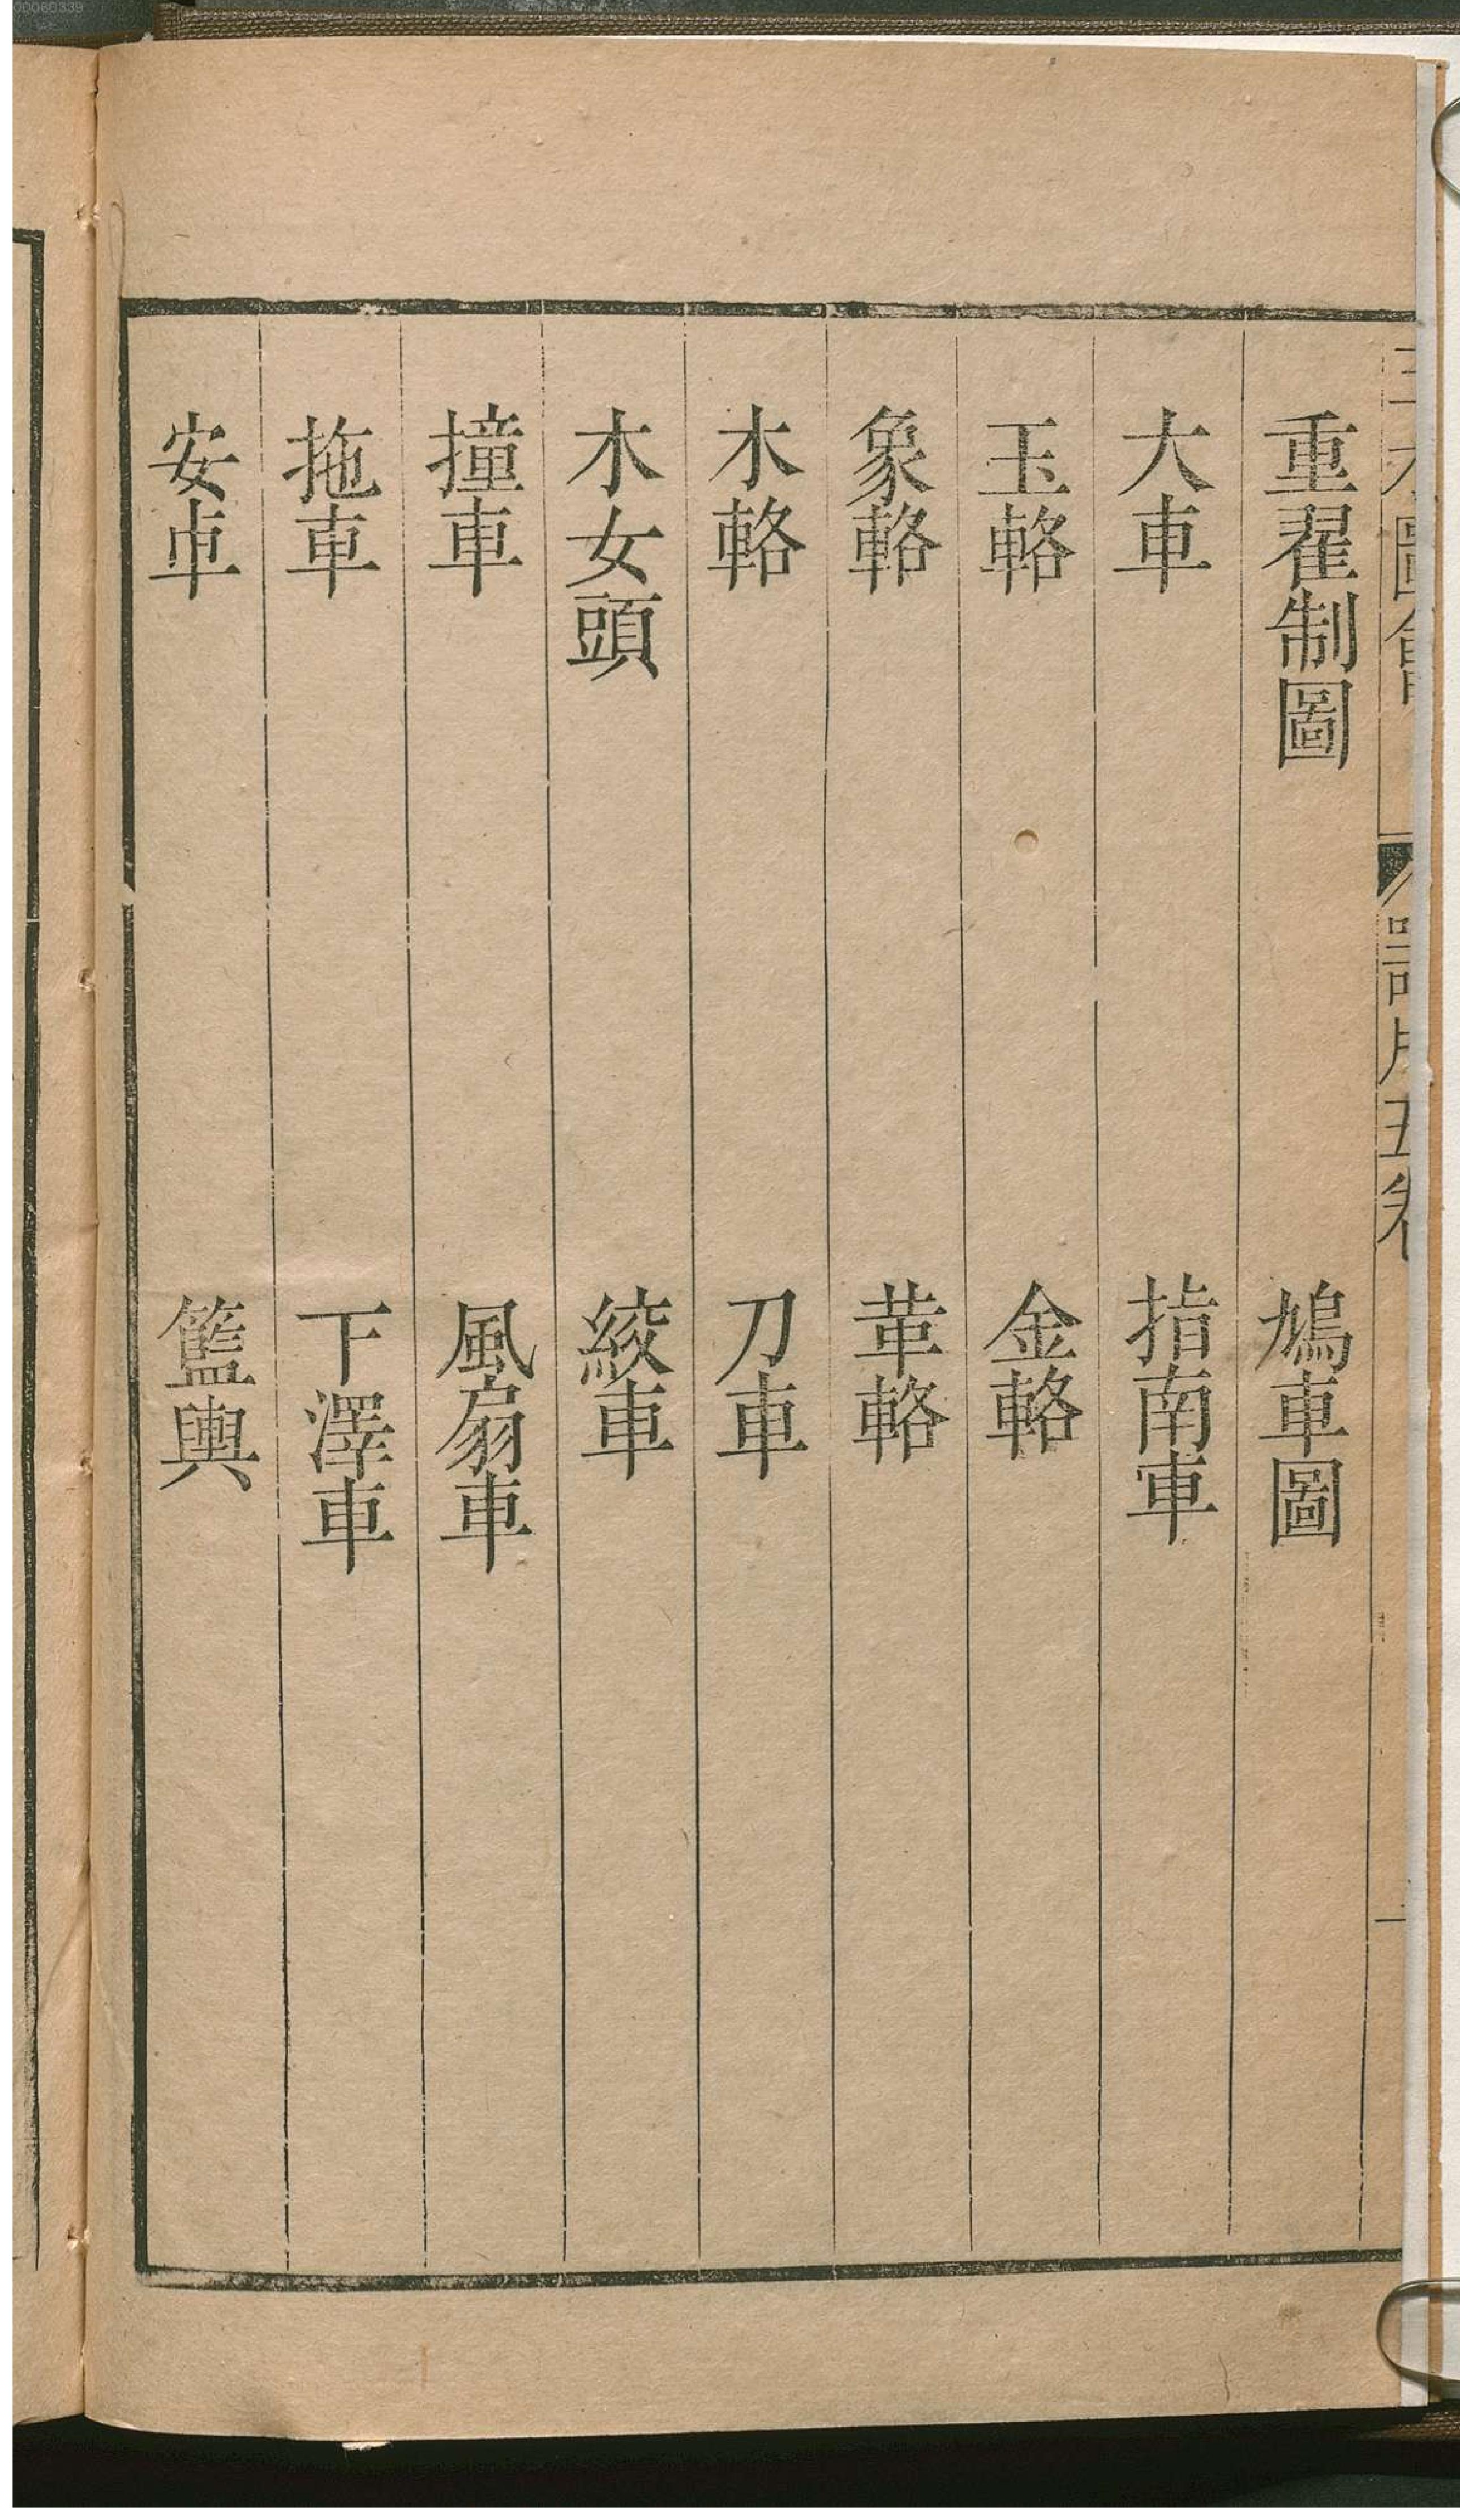 重翟制圖 鳩車圖
大車 指南車
玉輅 金輅
象輅 革輅
木輅 刀車
木女頭 絞車
撞車 風扇車
拖車 下澤車
安車 籃輿
00060339